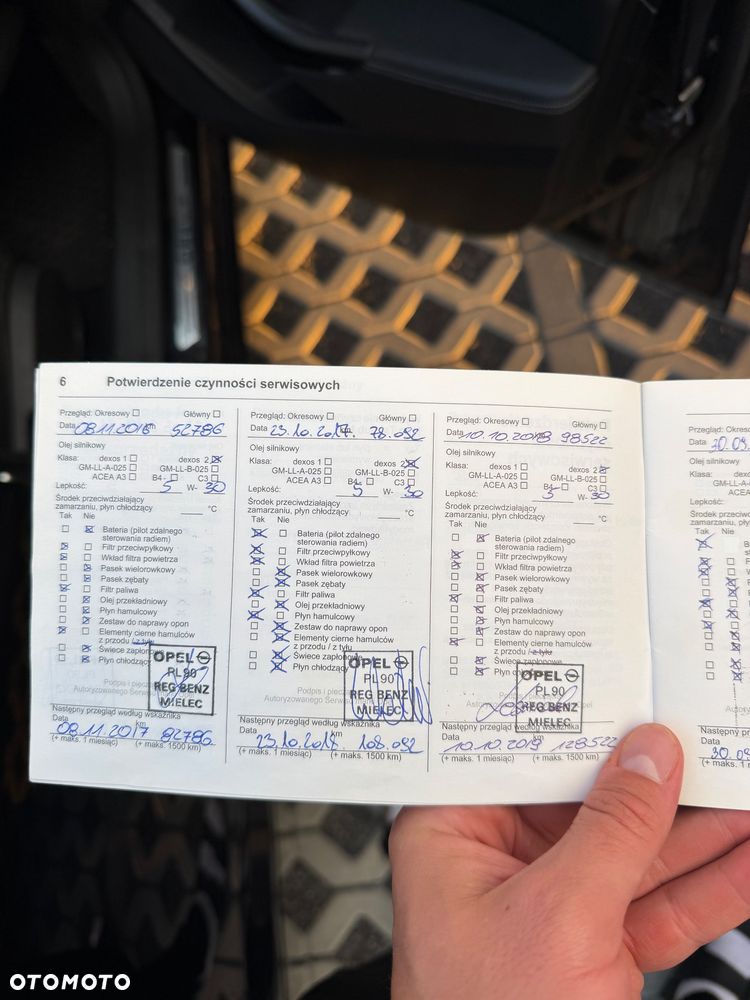 6 Potwierdzenie czynności serwisowych
Przegląd: Okresowy Główny
Data 08.11.2016 km 52786
Olej silnikowy
Klasa: dexos 1 dexos 2
GM-LL-A-025 GM-LL-B-025
ACEA A3 B4- C3
Lepkość: 5 W- 30
Środek przeciwdziałający
zamarzaniu, płyn chłodzący °C
Tak Nie
Bateria (pilot zdalnego
sterowania radiem)
Filtr przeciwpyłkowy
Wkład filtra powietrza
Pasek wielorowkowy
Pasek zębaty
Filtr paliwa
Olej przekładniowy
Płyn hamulcowy
Zestaw do naprawy opon
Elementy cierne hamulców
z przodu / z tyłu
Świece zapłonowe
Płyn chłodzący
OPEL
PL 90
REG BENZ
MIELEC
Następny przegląd według wskaźnika
Data km
08.11.2017 82786
(+ maks. 1 miesiąc) (+ maks. 1500 km)
Przegląd: Okresowy Główny
Data 23.10.2017. km 78.092
Olej silnikowy
Klasa: dexos 1 dexos 2
GM-LL-A-025 GM-LL-B-025
ACEA A3 B4- C3
Lepkość: 5 W- 30
Środek przeciwdziałający
zamarzaniu, płyn chłodzący °C
Tak Nie
Bateria (pilot zdalnego
sterowania radiem)
Filtr przeciwpyłkowy
Wkład filtra powietrza
Pasek wielorowkowy
Pasek zębaty
Filtr paliwa
Olej przekładniowy
Płyn hamulcowy
Zestaw do naprawy opon
Elementy cierne hamulców
z przodu / z tyłu
Świece zapłonowe
Płyn chłodzący
OPEL
PL 90
REG BENZ
MIELEC
Następny przegląd według wskaźnika
Data km
23.10.2018. 108.092
(+ maks. 1 miesiąc) (+ maks. 1500 km)
Przegląd: Okresowy Główny
Data 10.10.2018 98522
Olej silnikowy
Klasa: dexos 1 dexos 2
GM-LL-A-025 GM-LL-B-025
ACEA A3 B4- C3
Lepkość: 5 W- 30
Środek przeciwdziałający
zamarzaniu, płyn chłodzący °C
Tak Nie
Bateria (pilot zdalnego
sterowania radiem)
Filtr przeciwpyłkowy
Wkład filtra powietrza
Pasek wielorowkowy
Pasek zębaty
Filtr paliwa
Olej przekładniowy
Płyn hamulcowy
Zestaw do naprawy opon
Elementy cierne hamulców
z przodu / z tyłu
Świece zapłonowe
Płyn
OPEL
PL 90
REG BENZ
MIELEC
Następny przegląd według wskaźnika
Data km
10.10.2019 128522
(+ maks. 1 miesiąc) (+ maks. 1500 km)
Przegląd:
Data 30.09.
Olej silnikowy
Klasa:
GM-LL-A
ACEA
Lepkość:
Środek przeciwdz
zamarzaniu, płyn
Tak Nie
Następny prz
Data
30.09
(+ maks. 1 m
OTOMOTO